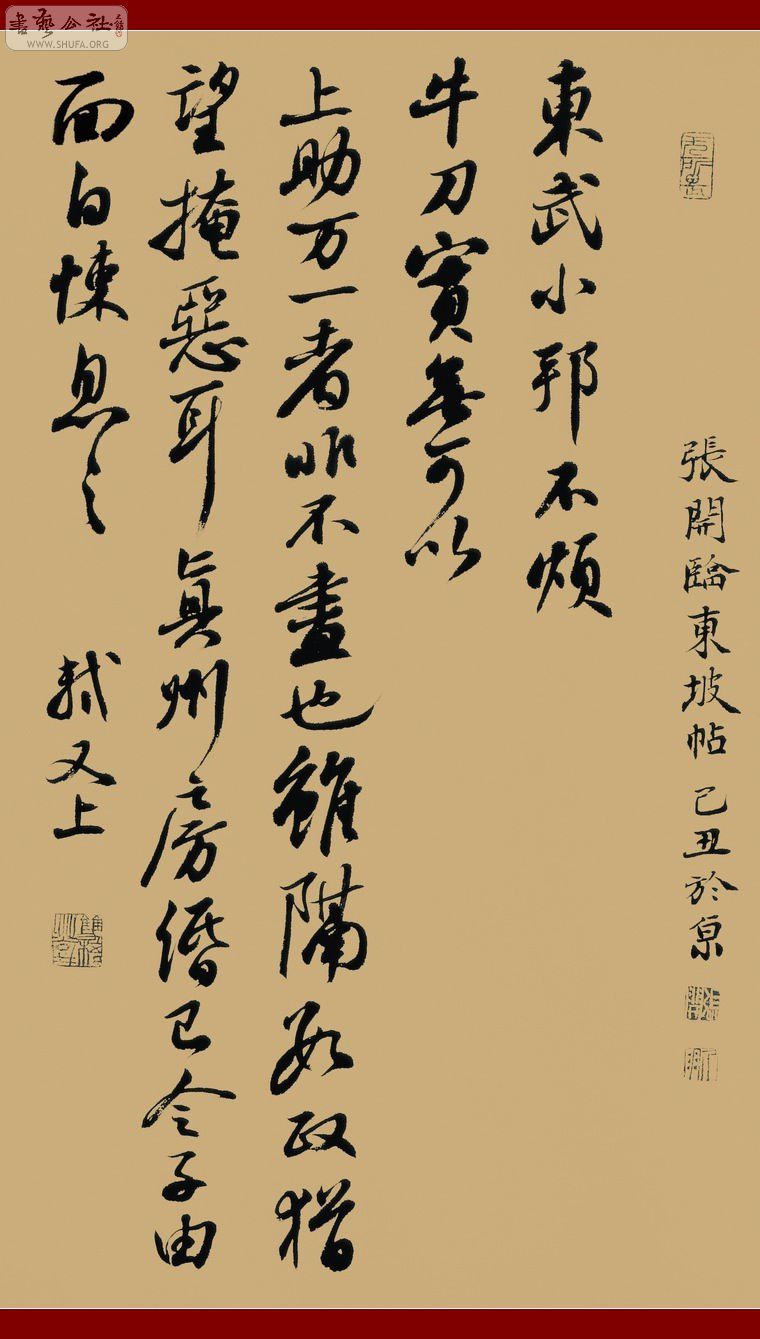 書藝公社
WWW.SHUFA.ORG
張開臨東坡帖 己丑於京
東武小邦不煩
牛刀實無可以
上助万一者非不盡也雖隔數政猶
望掩惡耳真州房緡已令子由
面白悚息〻 軾又上